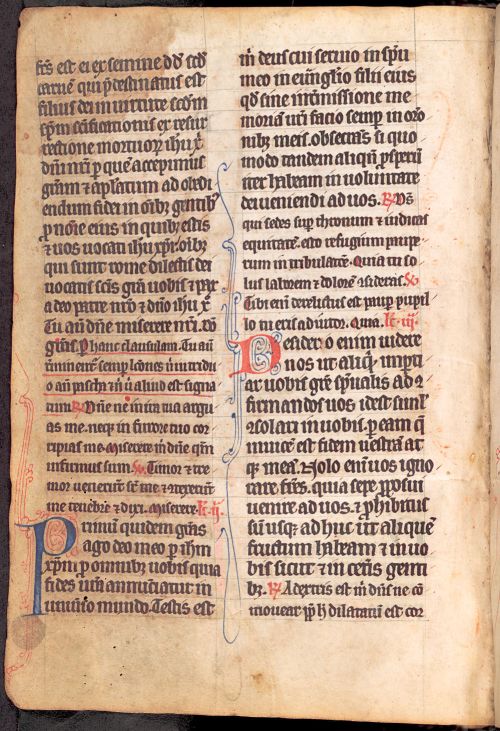 est ei ex semine dd scd
carnē qui p̄destinatus est
filius dei in uirtute scdm
spm̄ scificationis ex resur
rectione mortuor ihu x̄
dn̄i nr̄i p quē accepimus
grām & aplatum ad obedi
endum fidei in oībz gentibz
p noīe eius in quibz estis
& uos uocati ihu xp̄i olbz
qui sunt rome dilectis dei
uocatis scīs grā uobis & pax
a deo patre nr̄o & dn̄o ihu x̄
Tu aū dn̄e miserere nr̄i
p hanc clausulam Tu aū
semp lcōnes
aliud est signa
tum R Dn̄e ne in ira tua argu
as me neqz in furore tuo cor
ripias me miserere m̄ dn̄e qm̄
infirmus sum V Timor & tre
mor uenerūt sr̄ me & 
me tenebre & dixi Miserere lc ij
Primū quidem grās
ago deo meo p ihm
xpm̄ p omnibz uobis quia
fides ur̄a annūciatur in
uniuso mundo Testis est
m̄ deus cui seruo in spū
meo in euanglio filii eius
qd sine int̄missione me
moriā ur̄i facio semp in orō
nibz meis obsecrās si quo
modo tandem aliqn̄ psperū
iter habeam in uoluntate
dei ueniendi ad uos R Ds̄
qui sedes sup thronum & iudicas
equitatē esto refugium paupe
rum in tribulatōe Quia tu so
lus laborem & dolorē csideras V
Tibi eni derelictus est paup pupil
lo tu eris adiutor Quia lc iij
Desidero enim uidere
uos ut aliqd impti
ar uobis grē spūalis ad c
firmandos uos idest simul
csolari in uobis p eam q̄
inuicē est fidem uestrā at
qz meā Nolo enī uos igno
rare frēs quia sepe pposui
uenire ad uos & phibitus
sum usqz ad huc ut aliquē
fructum habeam & in uo
bis sicut & in cet̄is genti
bz R A dextris est m̄ dn̄s ne cō
mouear pp h dilatatū est cor